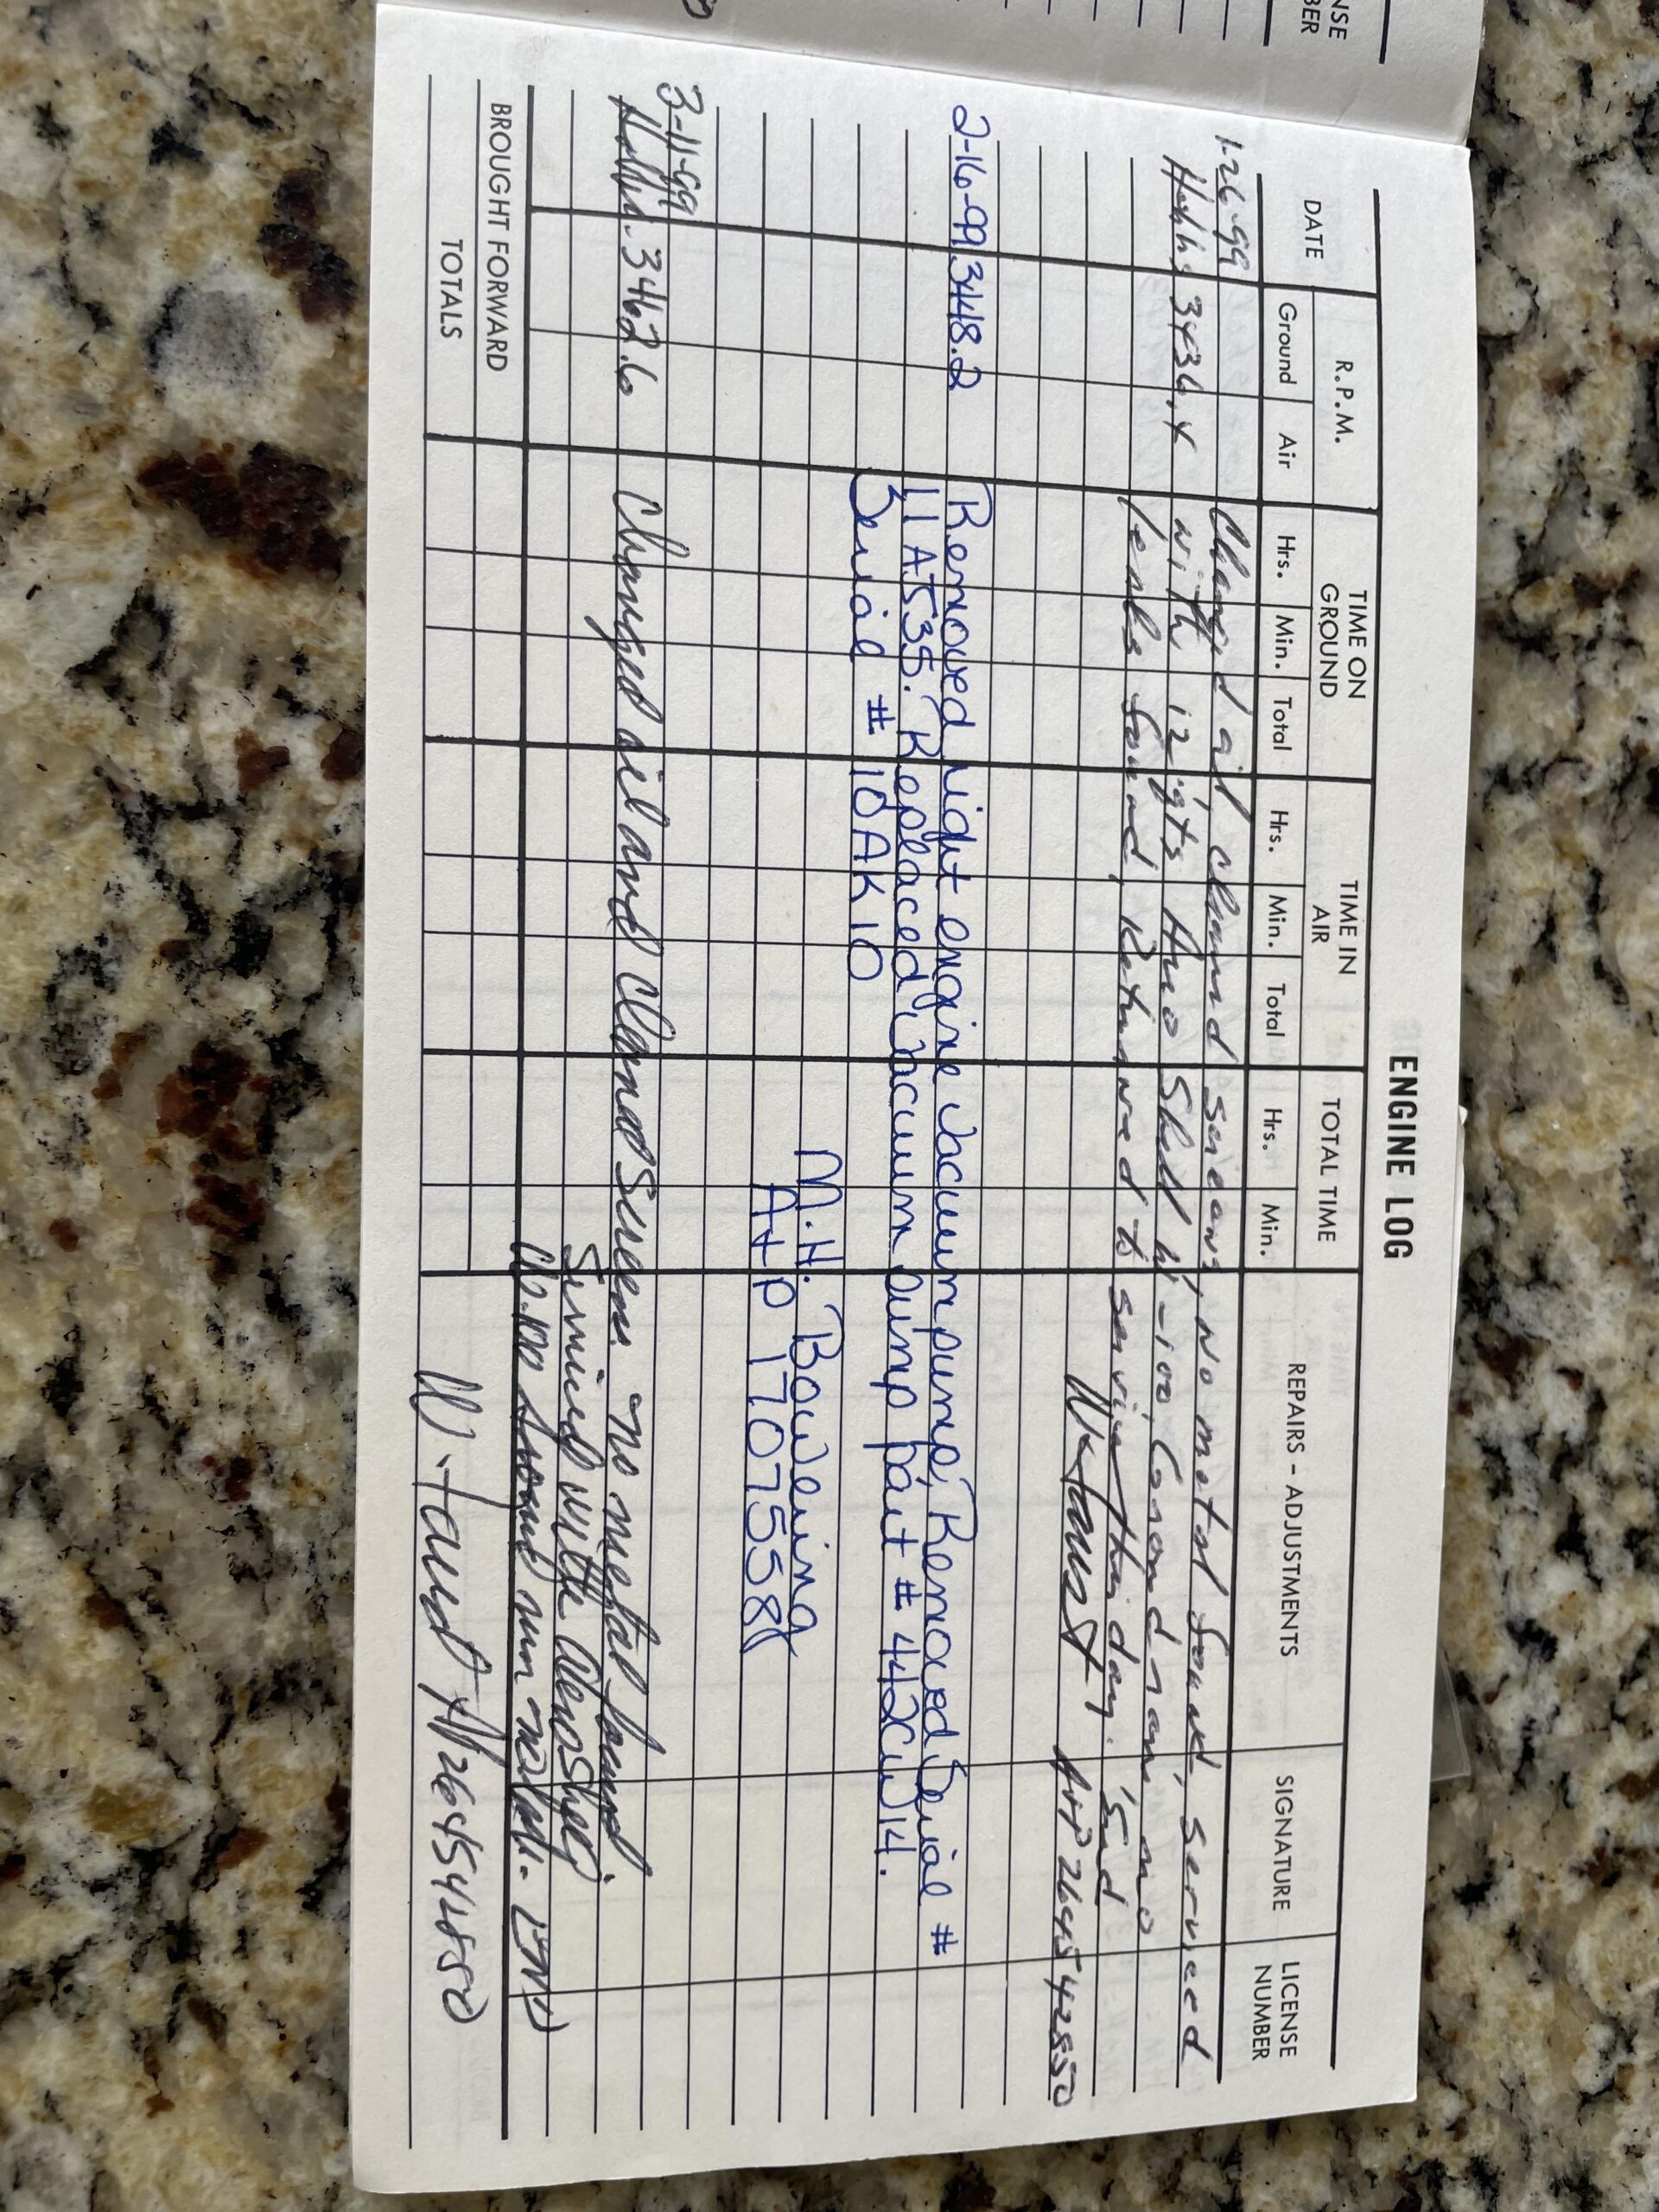 NSE
BER
ENGINE LOG
DATE
R.P.M.
Ground Air
TIME ON GROUND
Hrs. Min. Total
TIME IN AIR
Hrs. Min. Total
TOTAL TIME
Hrs. Min.
REPAIRS – ADJUSTMENTS
SIGNATURE
LICENSE NUMBER
1-26-99 Changed oil, cleaned screens, no metal found, serviced
Hobbs 3436.4 with 12 qts Aero Shell W-100, Ground ran, no
leaks found, Returned to service this day. End
W Faust A+P 264542850
2-16-99 3448.2 Removed right engine vacuum pump, Removed Serial #
11A535. Replaced vacuum pump part # 442CW14.
Serial # 10AK10
M.H. Bowering
A+P 1707558
3-11-99
Hobbs 3462.6 Changed oil and Cleaned Screen. no metal found
Serviced with AeroShell
W-100 Ground run no leaks. END
BROUGHT FORWARD
TOTALS W. Faust AP 264542850